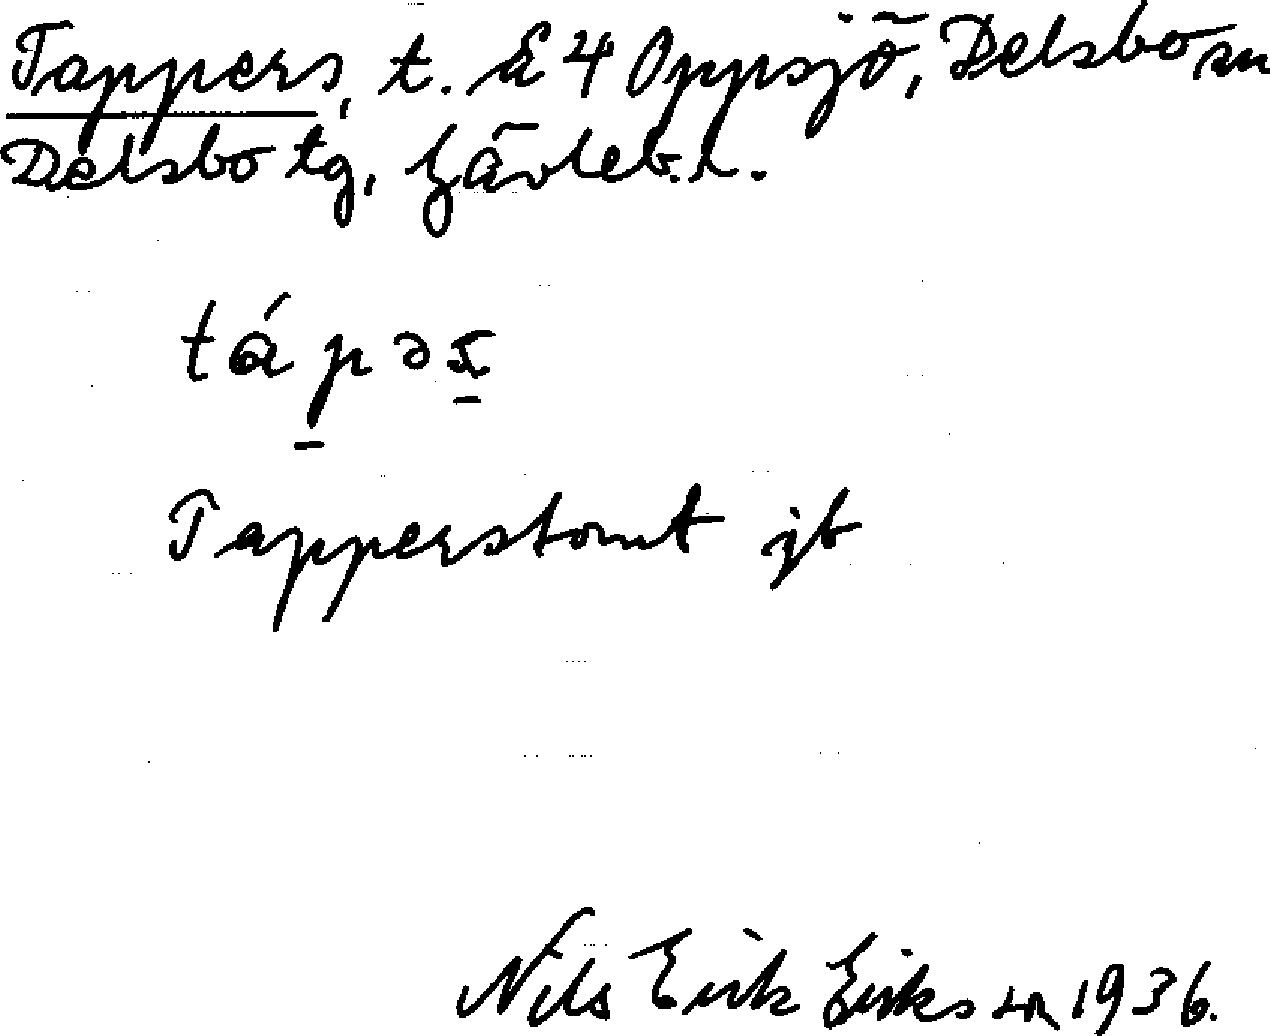 Tappers, t. å 4 Oppsjö, Delsbo sn
Delsbo tg, Gävleb. l.
tápəs
Tapperstomt jb
Nils Erik Eriksson 1936.